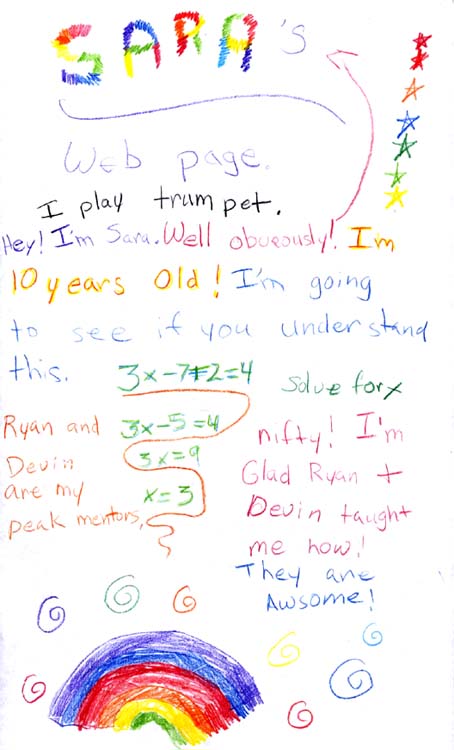 SARA's
Web page.
I play trumpet.
Hey! I'm Sara. Well obveously! I'm
10 years old! I'm going
to see if you understand
this.
3x-7+2=4
Solve for x
Ryan and
Devin
are my
peak mentors,
3x-5=4
3x=9
x=3
nifty! I'm
Glad Ryan +
Devin taught
me how!
They are
Awsome!